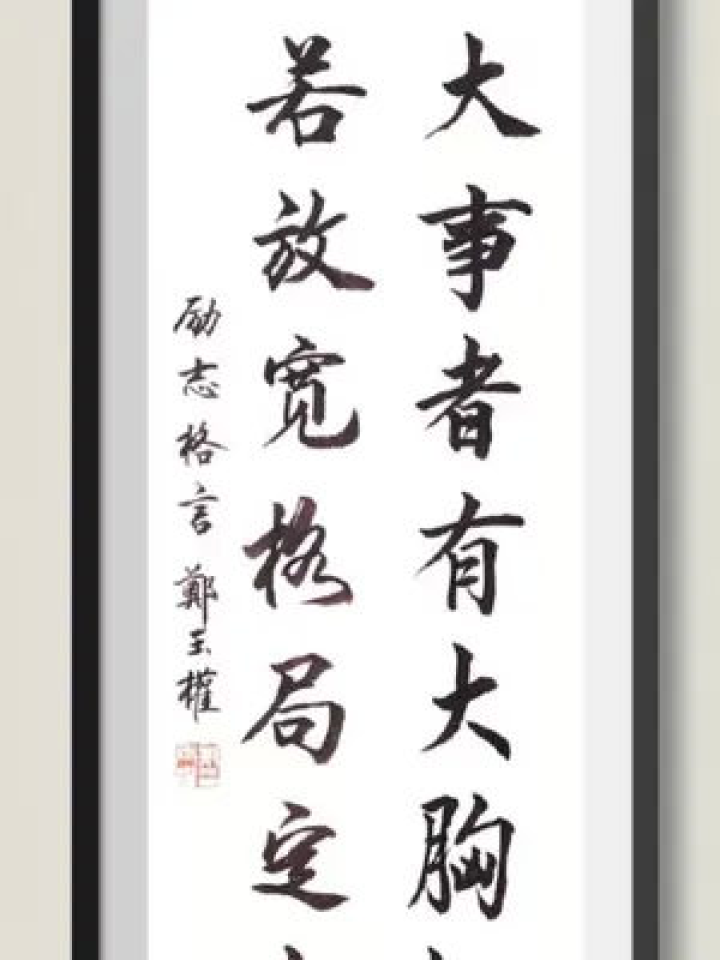 大事者有大胸
若放宽格局定
励志格言 鄭玉權